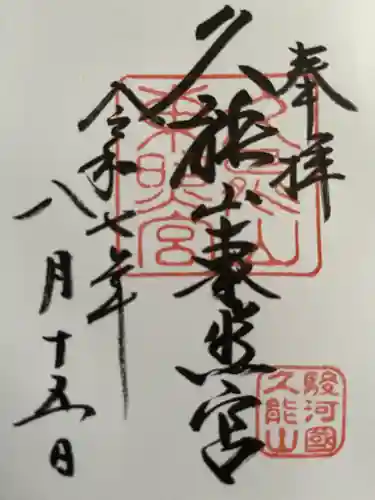 奉拝
久能山東照宮
令和七年
八月十五日
久能山東照宮
駿河國
久能山